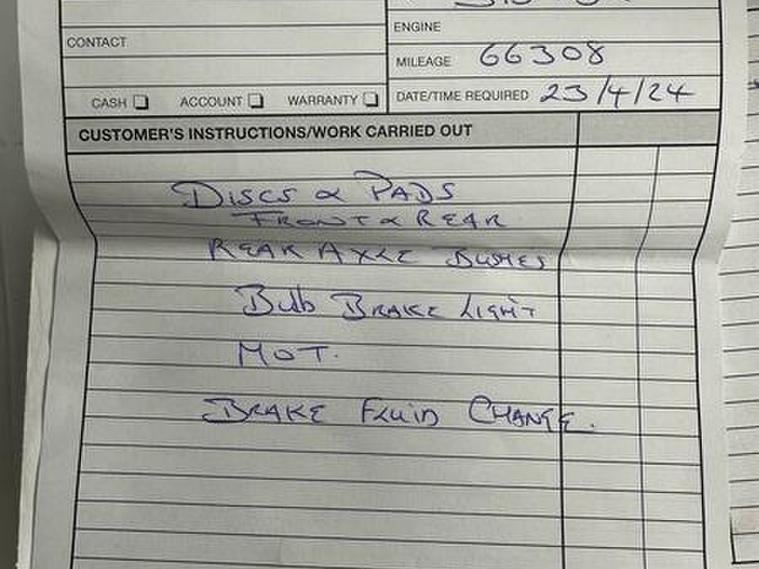 ENGINE
CONTACT
MILEAGE 66308
CASH ACCOUNT WARRANTY
DATE/TIME REQUIRED 23/4/24
CUSTOMER'S INSTRUCTIONS/WORK CARRIED OUT
DISCS & PADS
FRONT & REAR
REAR AXLE BUSHES
Bulb BRAKE LIGHT
MOT.
BRAKE FLUID CHANGE.